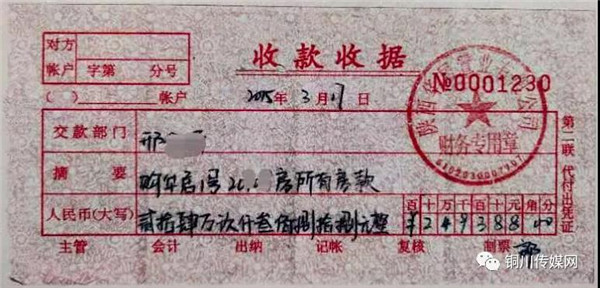 收款收据
对方
帐户 字第 分号
( ) 帐户
№0001230
2015年3月17日
陕西 公司
财务专用章
6102030007707
交款部门 邢
摘要 购华启1号20 房所有房款
百十万千百十元角分
人民币(大写) 贰拾肆万玖仟叁佰捌拾捌元整 ¥24938800
主管 会计 出纳 记帐 复核 制票
第二联 代付出凭证
铜川传媒网